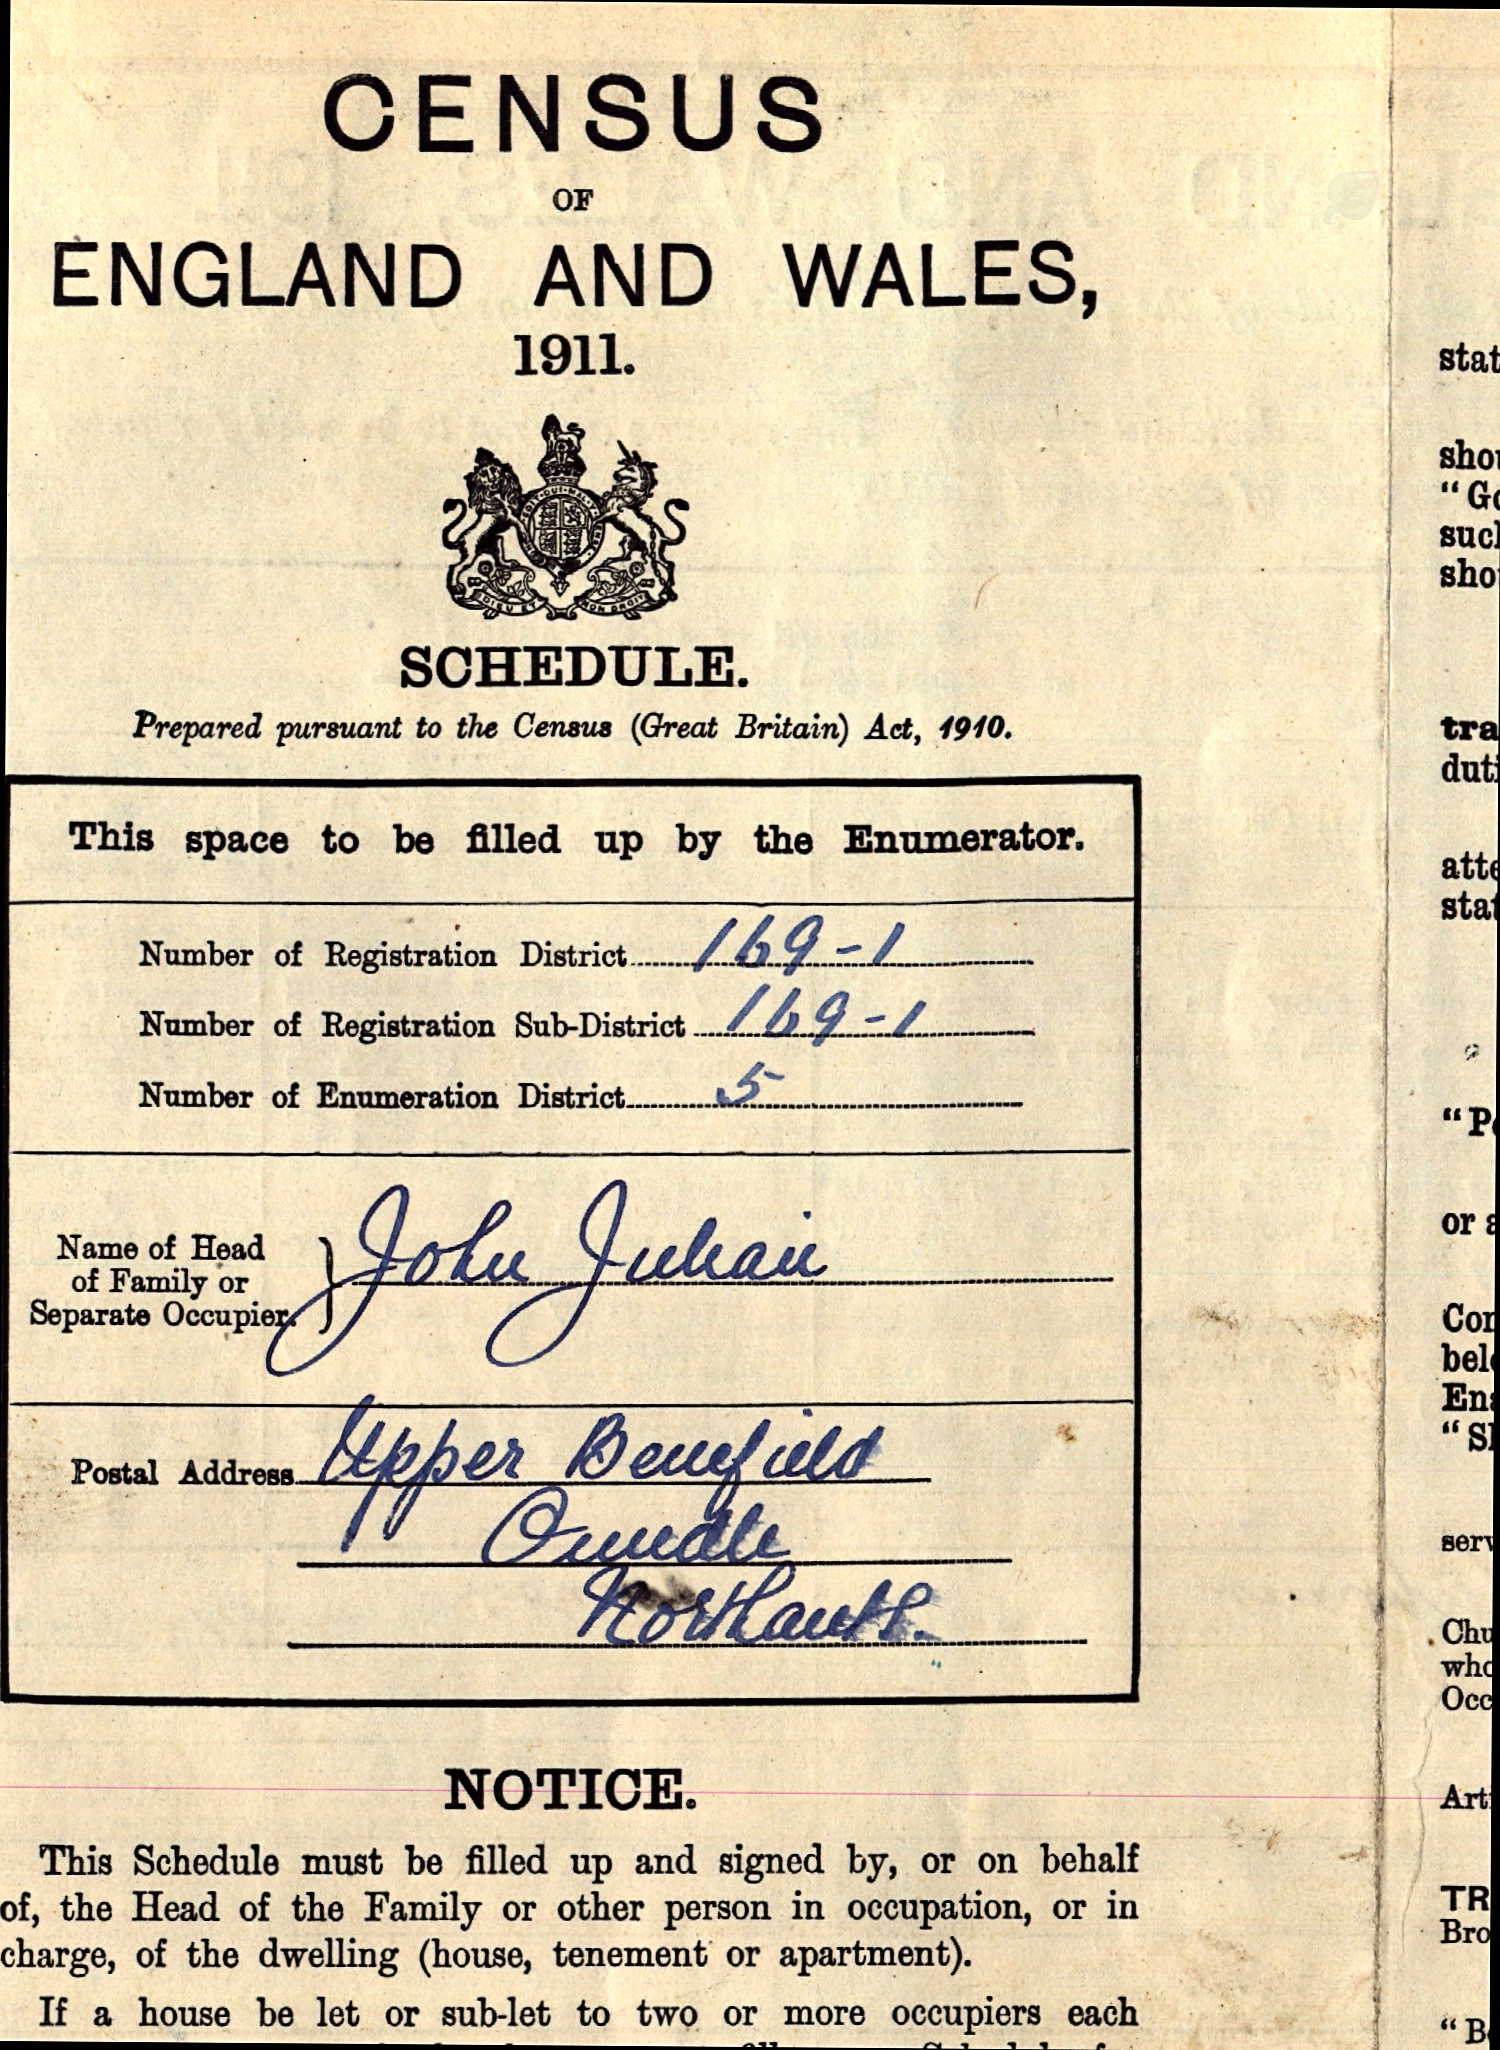 CENSUS
OF
ENGLAND AND WALES,
1911.
SCHEDULE.
Prepared pursuant to the Census (Great Britain) Act, 1910.
This space to be filled up by the Enumerator.
Number of Registration District 169-1
Number of Registration Sub-District 169-1
Number of Enumeration District 5
Name of Head
of Family or
Separate Occupier.
John Julian
Postal Address Upper Benefield
Oundle
Northants.
NOTICE.
This Schedule must be filled up and signed by, or on behalf
of, the Head of the Family or other person in occupation, or in
charge, of the dwelling (house, tenement or apartment).
If a house be let or sub-let to two or more occupiers each